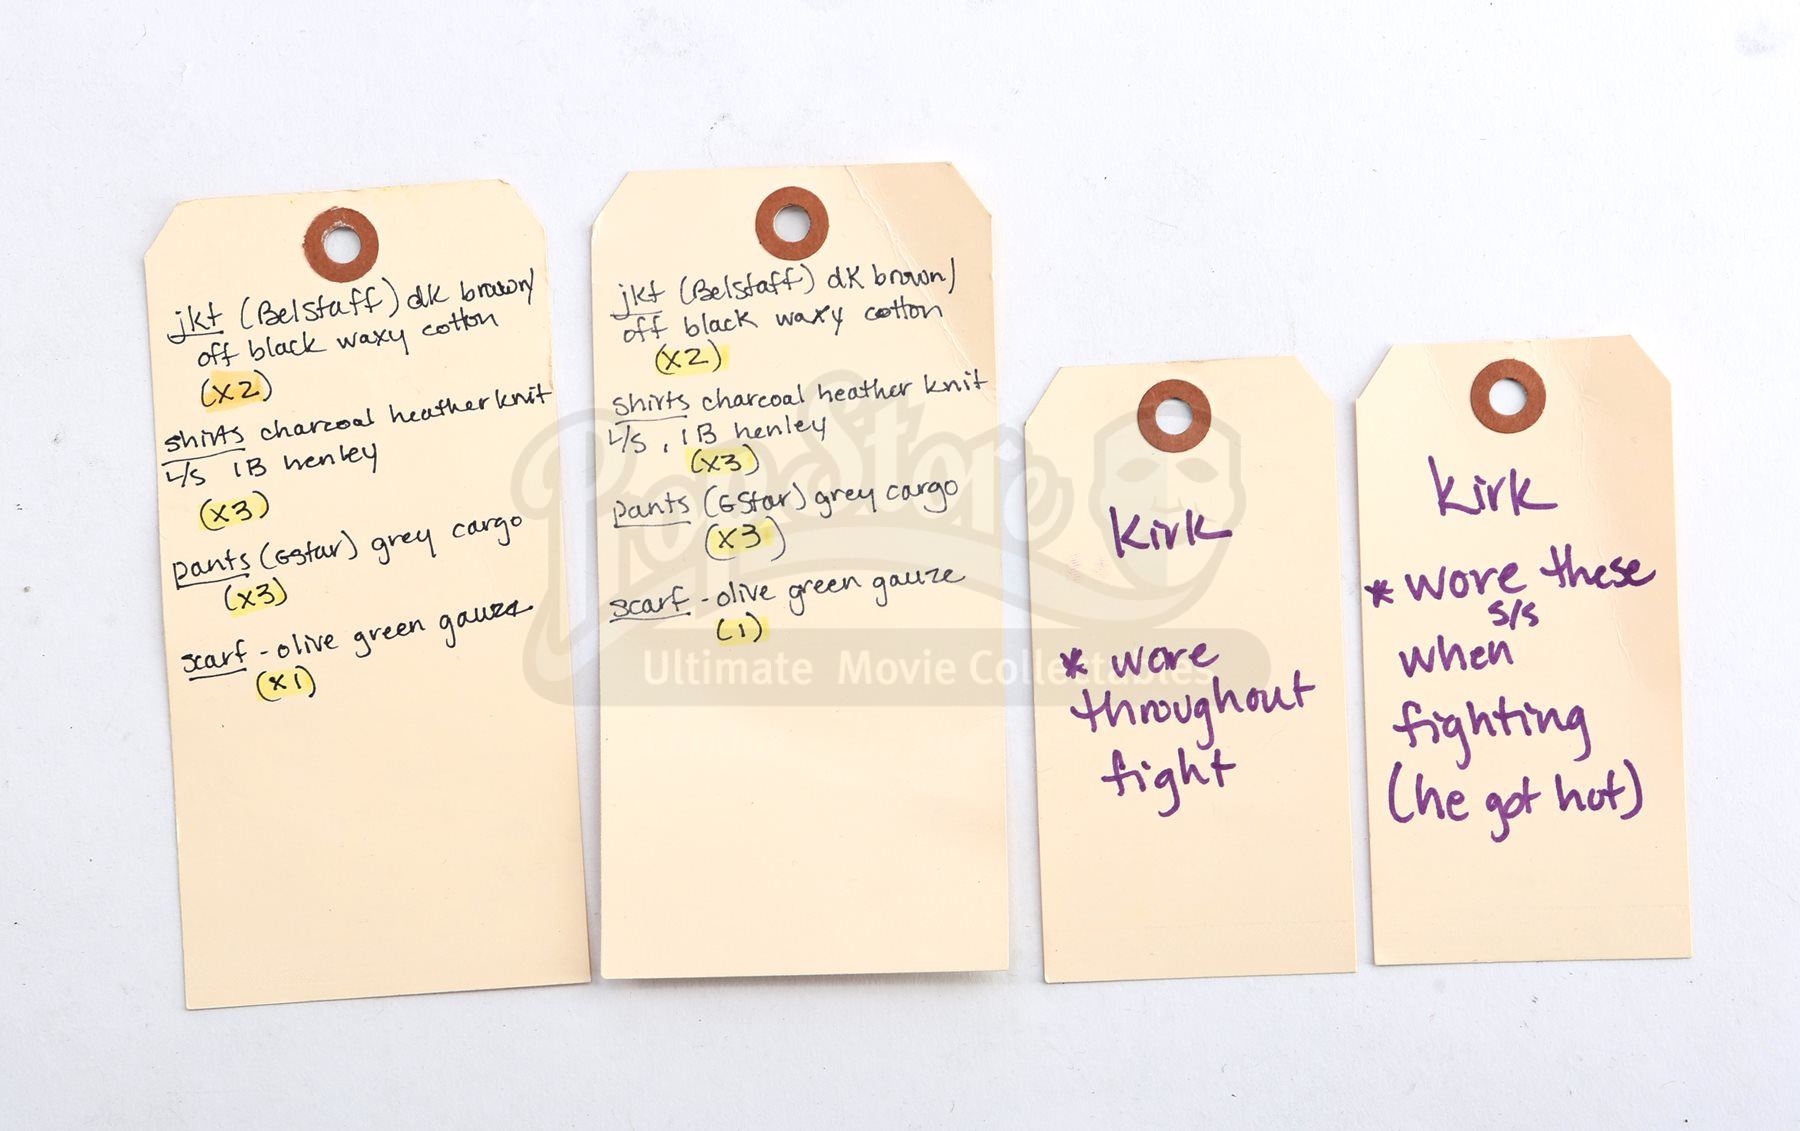 jkt (Belstaff) dk brown/
off black waxy cotton
(x2)
shirts charcoal heather knit
L/S 1B henley
(x3)
pants (GStar) grey cargo
(x3)
scarf - olive green gauze
(x1)
jkt (Belstaff) dk brown/
off black waxy cotton
(x2)
shirts charcoal heather knit
L/S, 1B henley
(x3)
pants (GStar) grey cargo
(x3)
scarf - olive green gauze
(1)
Kirk
* wore
throughout
fight
Kirk
* wore these
s/s
when
fighting
(he got hot)
Prop Store
Ultimate Movie Collectables